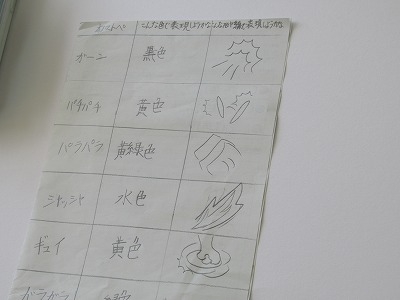 こんな色で表現しようかな
こんな形や線で表現しようかな
黒色
パチパチ
黄色
パラパラ
黄緑色
シャッシャ
水色
ギュイ
黄色
ガラガラ